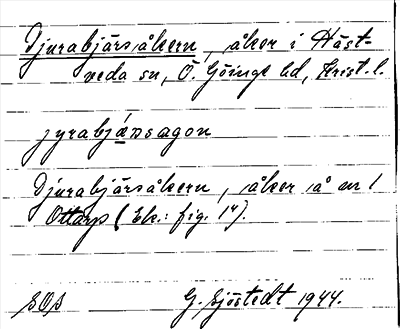 Djurabjärsåkern, åker i Häst-
veda sn, Ö. Göinge hd, Krist. l.
jyrabjæ̱rsagon
Djurabjärsåkern, åker å nr 1
Ottarp (Ek.: fig. 14).
SOS G. Sjöstedt 1944.